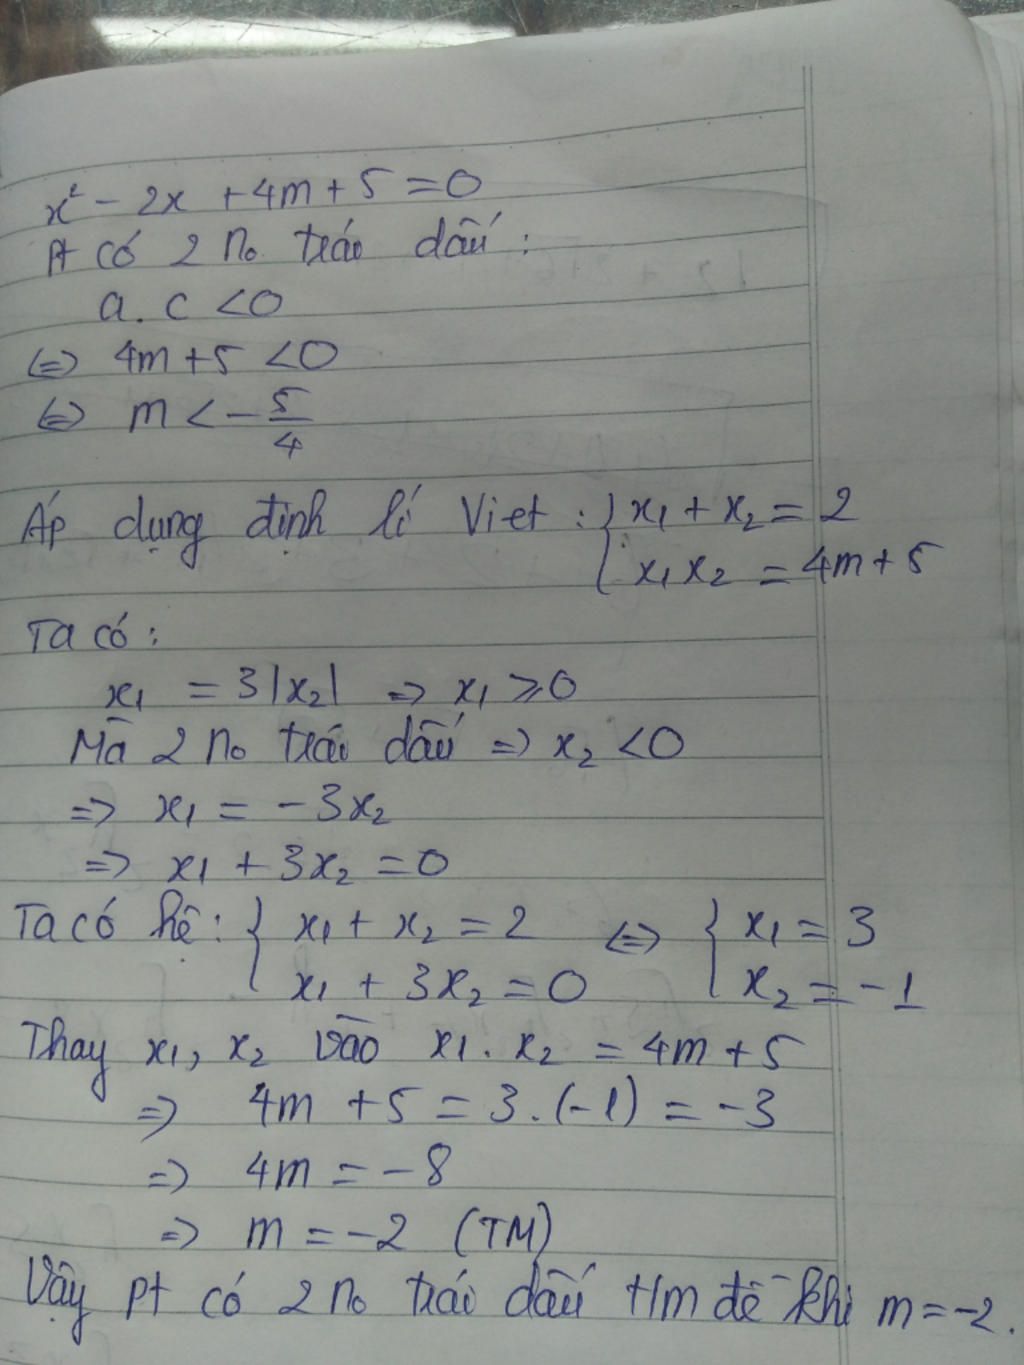 x² - 2x + 4m + 5 = 0
Pt có 2 n₀ trái dấu:
a. c < 0
⇔ 4m + 5 < 0
⇔ m < - 5/4
Áp dụng định lí Viet: { x₁ + x₂ = 2
x₁x₂ = 4m + 5
Ta có:
x₁ = 3|x₂| ⇒ x₁ ⩾ 0
Mà 2 n₀ trái dấu ⇒ x₂ < 0
⇒ x₁ = - 3x₂
⇒ x₁ + 3x₂ = 0
Ta có hệ: { x₁ + x₂ = 2 ⇔ { x₁ = 3
x₁ + 3x₂ = 0 x₂ = -1
Thay x₁, x₂ vào x₁. x₂ = 4m + 5
⇒ 4m + 5 = 3. (-1) = -3
⇒ 4m = - 8
⇒ m = -2 (TM)
Vậy pt có 2 n₀ trái dấu t/m đề khi m = -2.